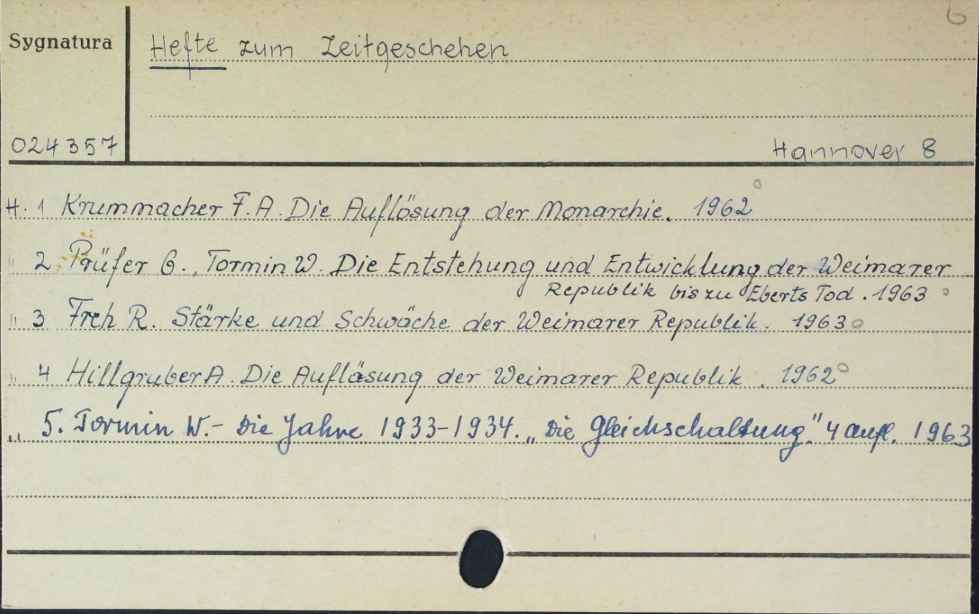 6
Sygnatura
Hefte zum Zeitgeschehen
024357
Hannover 8
H. 1 Krummacher F. A. Die Auflösung der Monarchie. 1962
" 2 Prüfer G., Tormin W. Die Entstehung und Entwicklung der Weimarer
Republik bis zu Eberts Tod. 1963
" 3 Freh R. Stärke und Schwäche der Weimarer Republik. 1963
" 4 Hillgruber A. Die Aufläsung der Weimarer Republik. 1962
" 5. Tormin W.- Die Jahre 1933-1934. „Die Gleichschaltung." 4 aufl. 1963